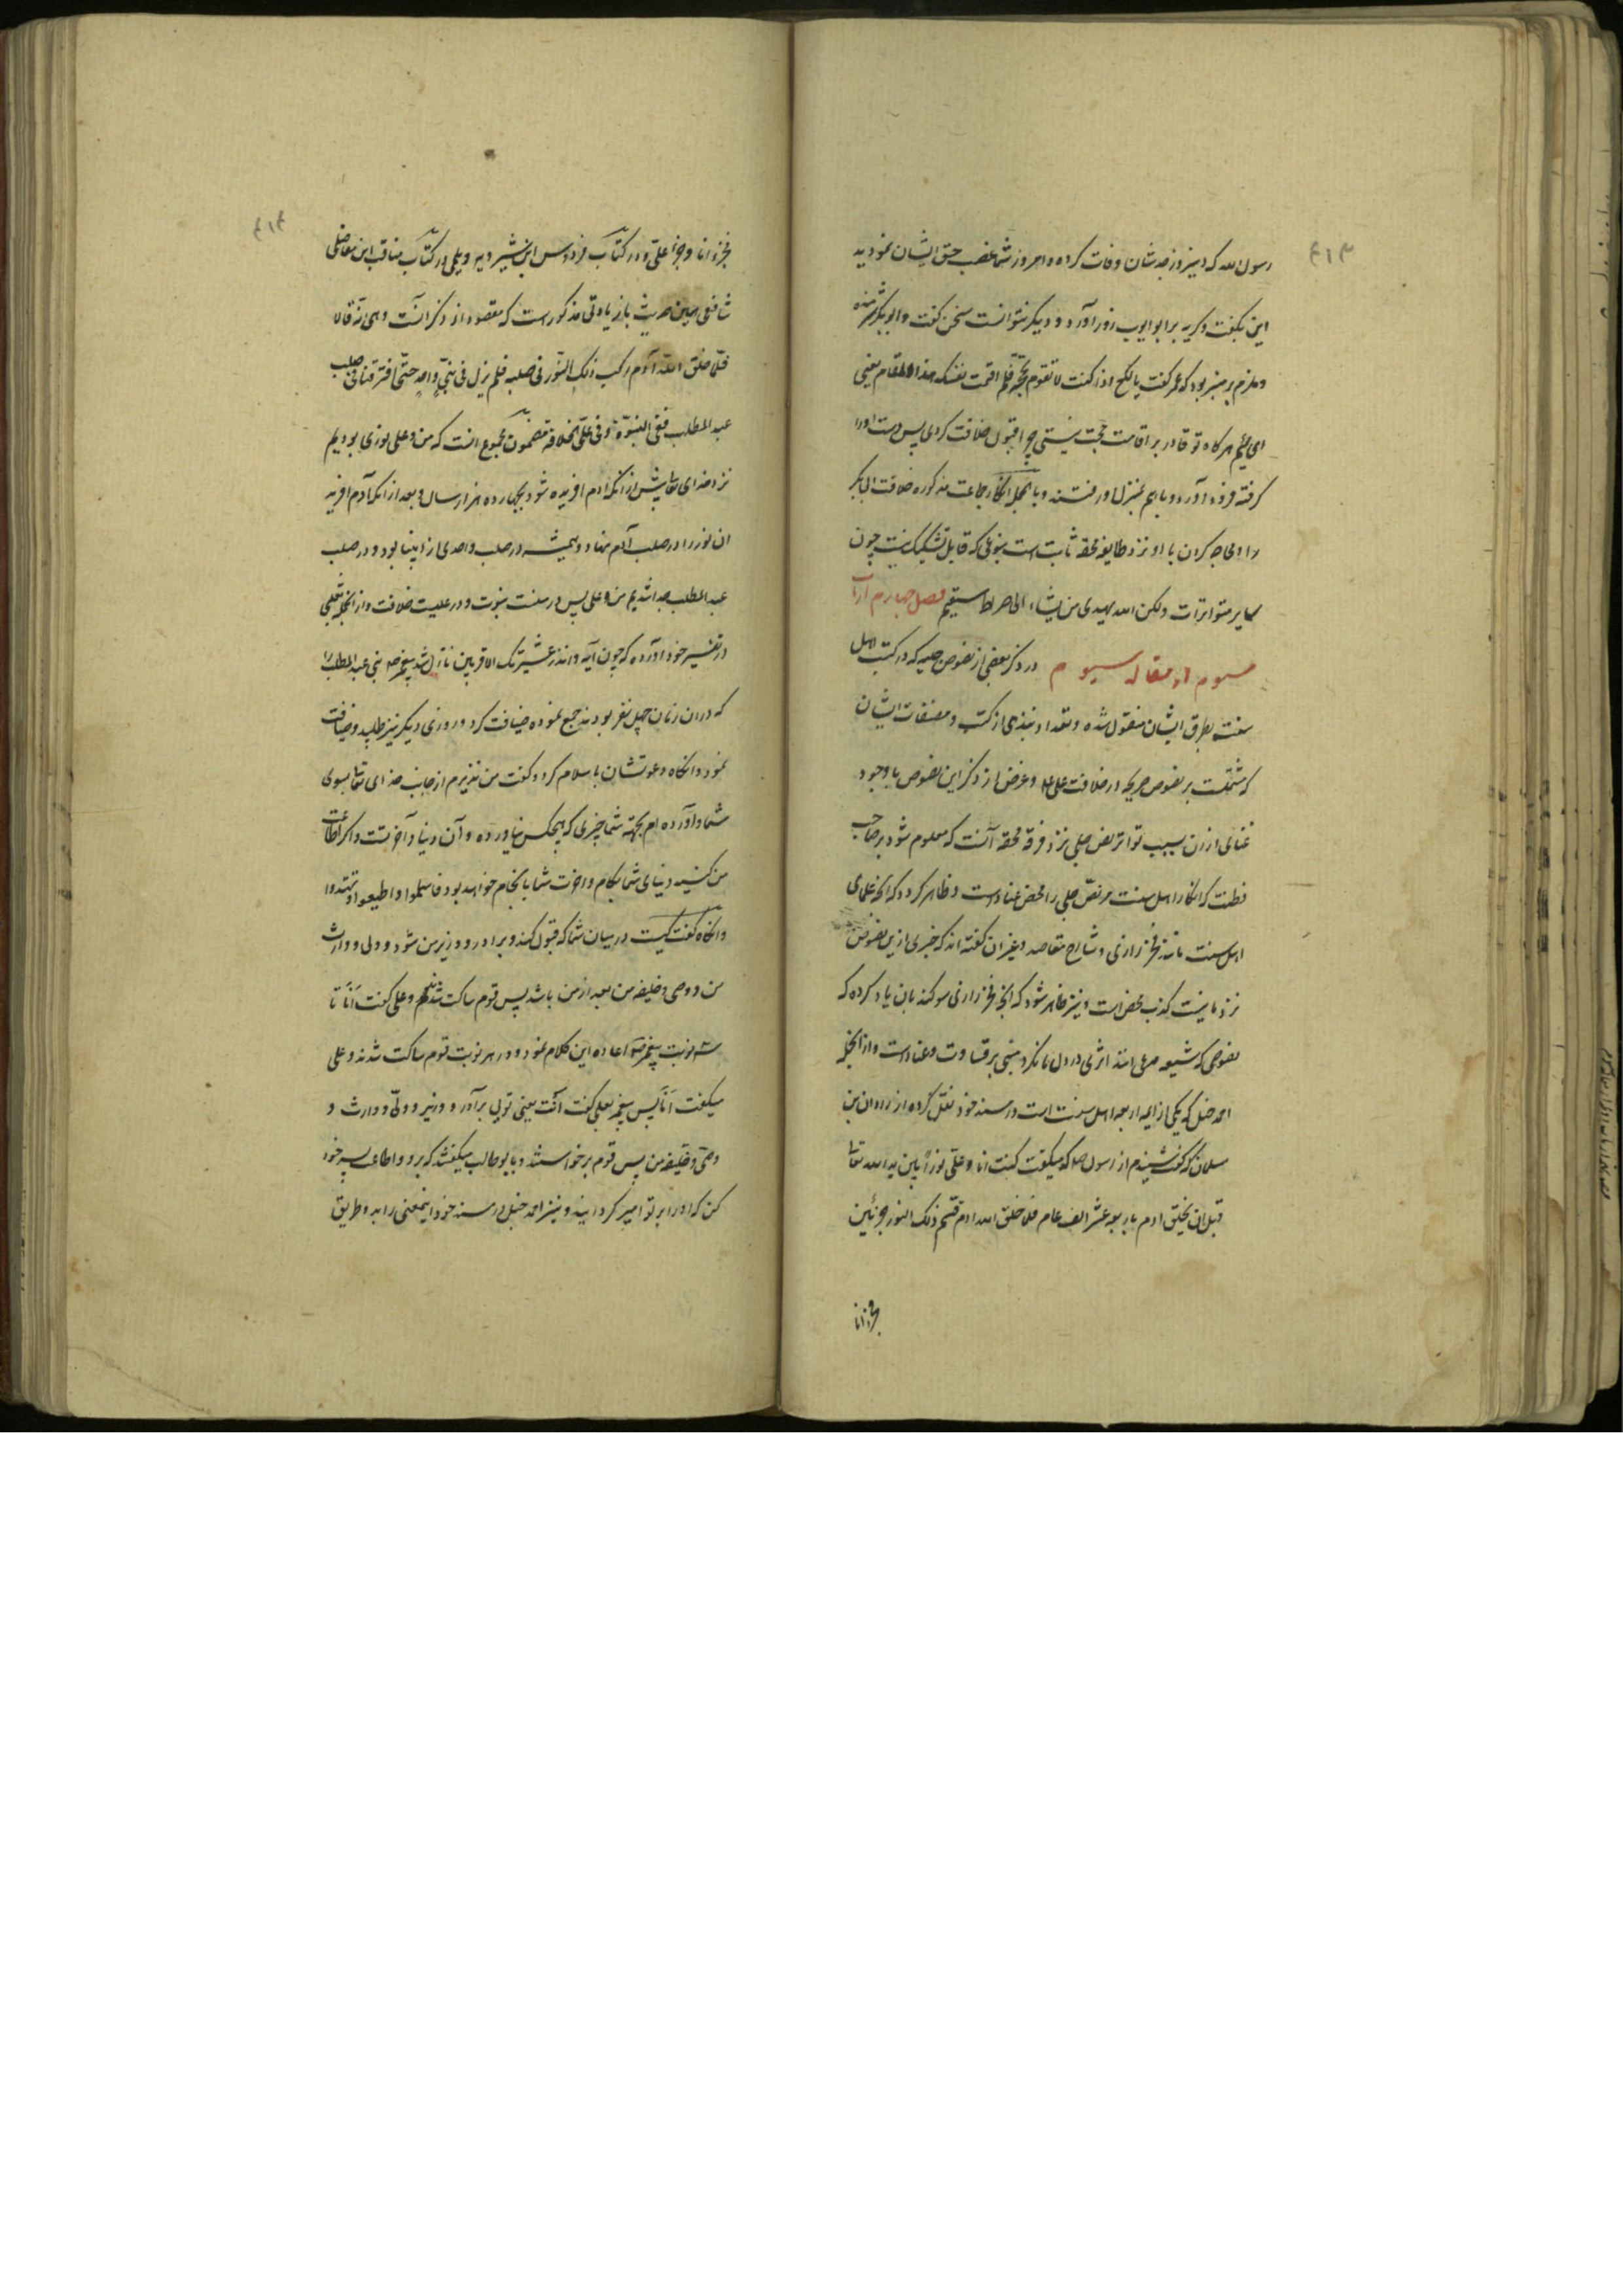 ۴۱۳
رسول الله که دیروز جدشان وفات کرده و امروز شما غصب حق ایشان نمودید
این بگفت و گریه بر ابو ایوب زور آورد و دیگر نتوانست سخن گفت و ابوبکر شرمنده
و ملزم بر منبر بود که عمر گفت یا لکع اذا کنت لا تقوم بحجة فلم اقمت نفسک هذا المقام یعنی
ای لئیم هرگاه تو قادر بر اقامت حجت نیستی چرا قبول خلافت کردی پس دست او را
گرفته فرود آورد و باهم بمنزل او رفتند و بالجمله انکار جماعت مذکوره خلافت ابی بکر
را و محاجه کردن با او نزد طایفه محقه ثابت است بنوعی که قابل تشکیک نیست چون
سایر متواترات ولکن الله یهدی من یشاء الی صراط مستقیم فصل چهارم از باب
سیوم از مقاله سیوم در ذکر بعضی از نصوص جلیه که در کتب اهل
سنت بطرق ایشان منقول شده و تعداد نبذی از کتب و مصنفات ایشان
که مشتملست بر نصوص صریحه در خلافت علی ع و غرض از ذکر این نصوص با وجود
غنای از آن بسبب تواتر نص جلی نزد فرقه محقه آنست که معلوم شود بر صاحب
فطنت که انکار اهل سنت مر نص جلی را محض عناد است و ظاهر گردد که آنچه علمای
اهل سنت مانند فخر رازی و شارح مقاصد و غیرهن گفته اند که خبری ازین نصوص
نزد ما نیست کذب محض است و نیز ظاهر شود که آنچه فخر رازی سوگند بان یاد کرده که
نصوصی که شیعه مدعی انند اثری در دل ما نکرد مبنی بر قساوت و عناد است و از آنجمله
احمد حنبل که یکی از ایمه اربعه اهل سنت است در مسند خود نقل کرده از زادان بن
سلمان که گفت شنیدم از رسول ص که میگفت کنت انا و علی نوراً بین ید الله تعالی
قبل ان یخلق ادم باربعه عشر الف عام فلما خلق الله ادم قسم ذلک النور جزئین
فجزء انا
۴۱۴
فجزء انا و جزء علی و در کتاب فردوس ابن شیرویه دیلمی و در کتاب مناقب ابن مغازلی
شافعی همین حدیث بازیادتی مذکور است که مقصود از ذکر آنست و هی انه قال
فلما خلق الله آدم رکب ذلک النور فی صلبه فلم یزل فی شیء واحد حتی افترقنا فی صلب
عبد المطلب ففی النبوة و فی علی الخلافة مضمون مجموع انست که من و علی نوری بودیم
نزد خدای تعالی پیش از انکه ادم افریده شود بچهارده هزار سال و بعد از انکه آدم افرید
ان نور را در صلب آدم نهاد و همیشه در صلب واحدی از انبیا بود و در صلب
عبد المطلب جدا شدیم من و علی پس در منست نبوت و در علیست خلافت و از انجمله ثعلبی
در تفسیر خود آورده که چون آیه و انذر عشیرتک الاقربین نازل شد پیغمبر ص بنی عبد المطلب را
که در ان زمان چهل نفر بودند جمع نموده ضیافت کرد و روزی دیگر نیز طلبید و ضیافت
نمود و انگاه دعوتشان باسلام کرد و گفت من نذیرم از جانب خدای تعالی بسوی
شما و آورده ام بجهة شما چیزی که هیچکس نیاورده و آن دنیا و آخرتست و اگر اطاعت
من کنید دنیای شما بکام و اخرت شما بانجام خواهد بود فاسلموا و اطیعوا تهتدوا
و انگاه گفت کیست در میان شما که قبول کند و برادر و وزیر من شود و ولی و وارث
من و وصی و خلیفه من بعد از من باشد پس قوم ساکت شدند و علی گفت انا تا
سه نوبت پیغمبر ص اعاده این کلام نمود و در هر نوبت قوم ساکت شدند و علی
میگفت انا پس پیغمبر بعلی گفت انت یعنی تویی برادر و وزیر و ولی و وارث و
وصی و خلیفه من پس قوم برخواستند و بابوطالب میگفتند که برو و اطاعت پسر خود
کن که او را بر تو امیر گردانید و نیز احمد حنبل در مسند خود اینمعنی را بدو طریق